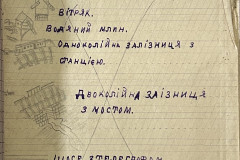 Вітряк.
Водяний млин.
Одноколійна залізниця з
станцією.
Двоколійна залізниця
з мостом.